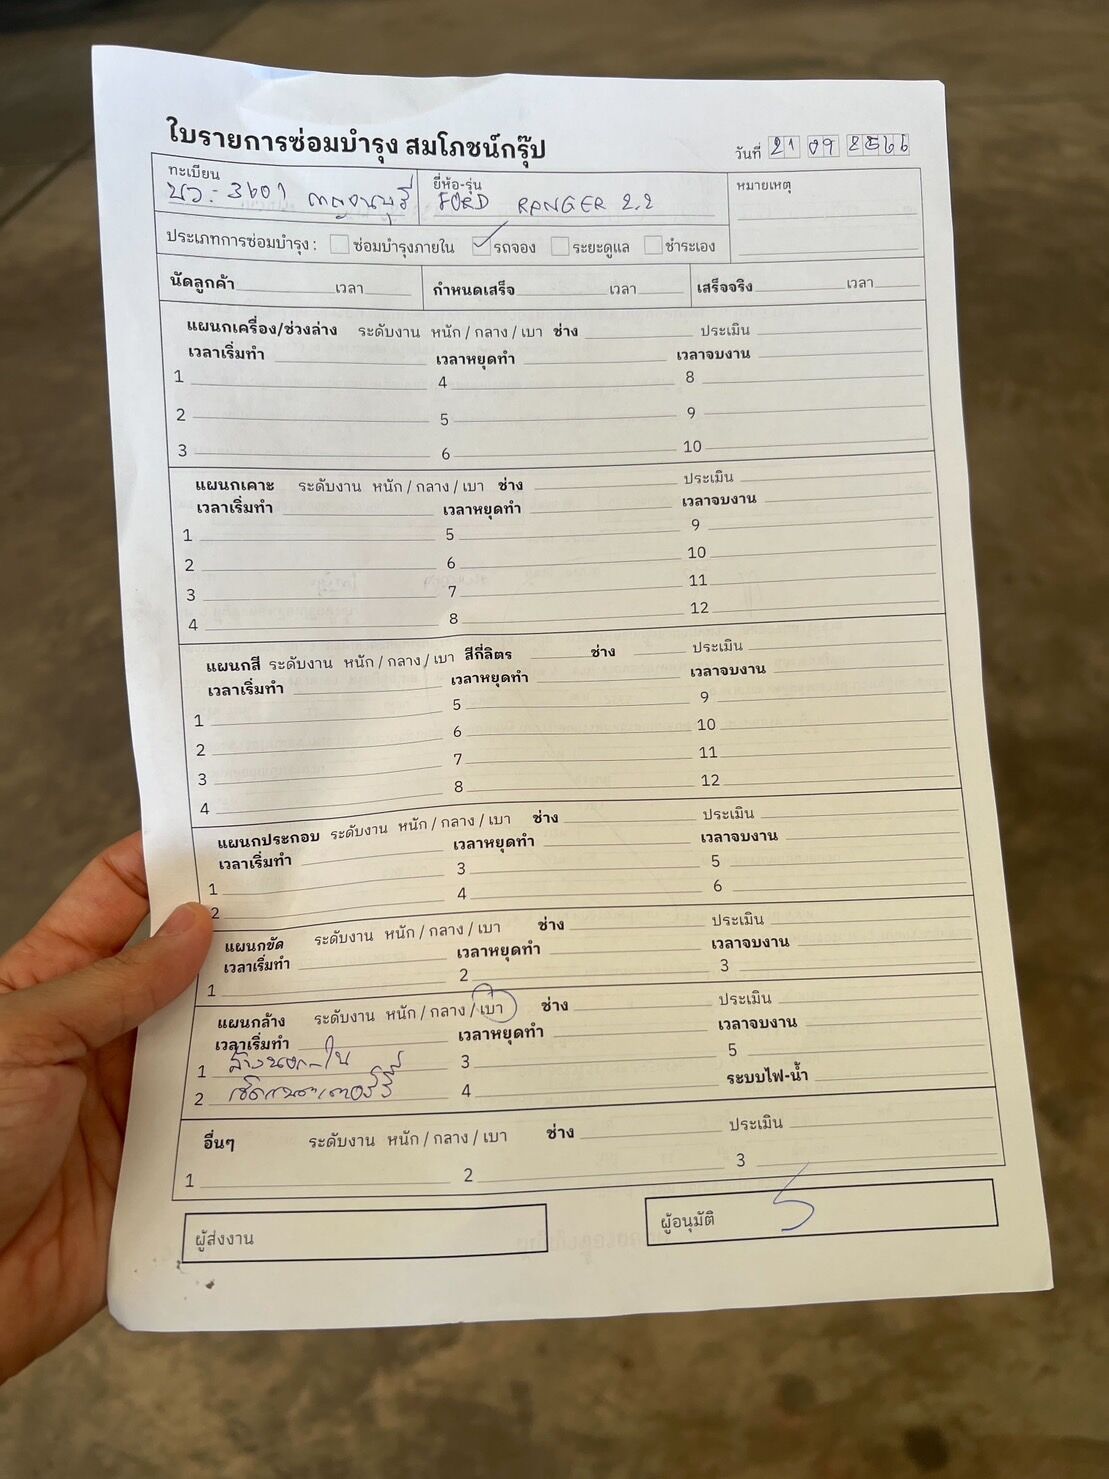 ใบรายการซ่อมบำรุง สมโภชน์กรุ๊ป
วันที่ 21 09 2566
ทะเบียน ยี่ห้อ-รุ่น หมายเหตุ
บว-3601 กาญจนบุรี FORD RANGER 2.2
ประเภทการซ่อมบำรุง : ซ่อมบำรุงภายใน รถจอง ระยะดูแล ชำระเอง
นัดลูกค้า เวลา กำหนดเสร็จ เวลา เสร็จจริง เวลา
แผนกเครื่อง/ช่วงล่าง ระดับงาน หนัก / กลาง / เบา ช่าง ประเมิน
เวลาเริ่มทำ เวลาหยุดทำ เวลาจบงาน
1 4 8
2 5 9
3 6 10
แผนกเคาะ ระดับงาน หนัก / กลาง / เบา ช่าง ประเมิน
เวลาเริ่มทำ เวลาหยุดทำ เวลาจบงาน
1 5 9
2 6 10
3 7 11
4 8 12
แผนกสี ระดับงาน หนัก / กลาง / เบา สีกี่ลิตร ช่าง ประเมิน
เวลาเริ่มทำ เวลาหยุดทำ เวลาจบงาน
1 5 9
2 6 10
3 7 11
4 8 12
แผนกประกอบ ระดับงาน หนัก / กลาง / เบา ช่าง ประเมิน
เวลาเริ่มทำ เวลาหยุดทำ เวลาจบงาน
1 3 5
2 4 6
แผนกขัด ระดับงาน หนัก / กลาง / เบา ช่าง ประเมิน
เวลาเริ่มทำ เวลาหยุดทำ เวลาจบงาน
1 2 3
แผนกล้าง ระดับงาน หนัก / กลาง / เบา ช่าง ประเมิน
เวลาเริ่มทำ เวลาหยุดทำ เวลาจบงาน
1 ล้างนอก-ใน 3 5
2 เช็ค แบตเตอร์รี่ 4 ระบบไฟ-น้ำ
อื่นๆ ระดับงาน หนัก / กลาง / เบา ช่าง ประเมิน
1 2 3
ผู้ส่งงาน ผู้อนุมัติ